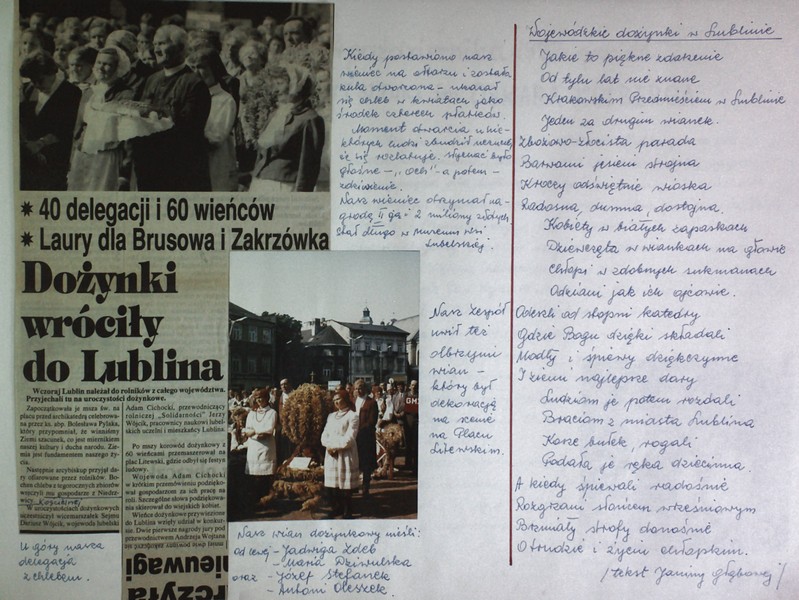 * 40 delegacji i 60 wieńców
* Laury dla Brusowa i Zakrzówka
Dożynki
wróciły
do Lublina
Wczoraj Lublin należał do rolników z całego województwa.
Przyjechali tu na uroczystości dożynkowe.
Zapoczątkowała je msza św. na
placu przed archikatedrą celebrowa-
na przez ks. abp. Bolesława Pylaka,
który przypomniał, że winniśmy
Ziemi szacunek, co jest miernikiem
naszej kultury i ducha narodu. Zie-
mia jest fundamentem naszego ży-
cia.
Następnie arcybiskup przyjął da-
ry ofiarowane przez rolników. Bo-
chen chleba z tegorocznych zbiorów
wręczyli mu gospodarze z Niedrz-
wicy Kościelnej
W uroczystościach dożynkowych
uczestniczył wicemarszałek Sejmu
Dariusz Wójcik, wojewoda lubelski
Adam Cichocki, przewodniczący
rolniczej „Solidarności” Jerzy
Wójcik, pracownicy naukowi lubel-
skich uczelni i mieszkańcy Lublina
Po mszy korowód dożynkowy z
60 wieńcami przemaszerował na
plac Litewski, gdzie odbył się festyn
ludowy.
Wojewoda Adam Cichocki
w krótkim przemówieniu podzięko-
wał gospodarzom za ich pracę na
roli. Szczególne słowa podziękowa-
nia skierował do wiejskich kobiet.
Wieńce dożynkowe przywiezione
do Lublina wzięły udział w konkur-
sie. Dwie pierwsze nagrody jury pod
przewodnictwem Andrzeja Wojtana
U góry nasza
delegacja
z chlebem.
Kiedy postawiono nasz
wieniec na ołtarzu i została
kula otworzona – ukazał
się chleb w kwiatach jako
środek czterech płatków.
Moment otwarcia u nie-
których ludzi zbudził
się się rozlatuje. słychać było
głośne – „och” – a potem –
zdziwienie.
Nasz wieniec otrzymał na-
grodę II gą i 2 miliony złotych
Stał długo w Muzeum Wsi
Lubelskiej.
Nasz Zespół
uwił też
olbrzymi
wian –
który był
dekoracją
na scenie
na Placu
Litewskim.
Nasz wian dożynkowy nieśli:
od lewej – Jadwiga Zdeb
– Maria Dziwulska
oraz – Józef Stefanek
– Antoni Oleszek.
nieuwagi
Wojewódzkie dożynki w Lublinie
Jakie to piękne zdarzenie
Od tylu lat nie znane
Krakowskim Przedmieściem w Lublinie
Jeden za drugim wianek.
Zbożowo-złocista parada
Barwami jesieni strojna
Kroczy odświętnie wioska
Radosna, dumna, dostojna.
Kobiety w białych zapaskach
Dziewczęta w wiankach na głowie
Chłopi w zdobnych sukmanach
Odziani jak ich ojcowie.
Odeszli od stopni katedry
Gdzie Bogu dzięki składali
Modły i śpiewy dziękczynne
I ziemi najlepsze dary
Ludziom je potem rozdali
Braciom z miasta Lublina
Kosze bułek, rogali
Podała je ręka dziecinna.
A kiedy śpiewali radośnie
Rozgrzani słońcem wrześniowym
Brzmiały strofy donośnie
O trudzie i życiu chłopskim.
/tekst Janiny Głębowej/